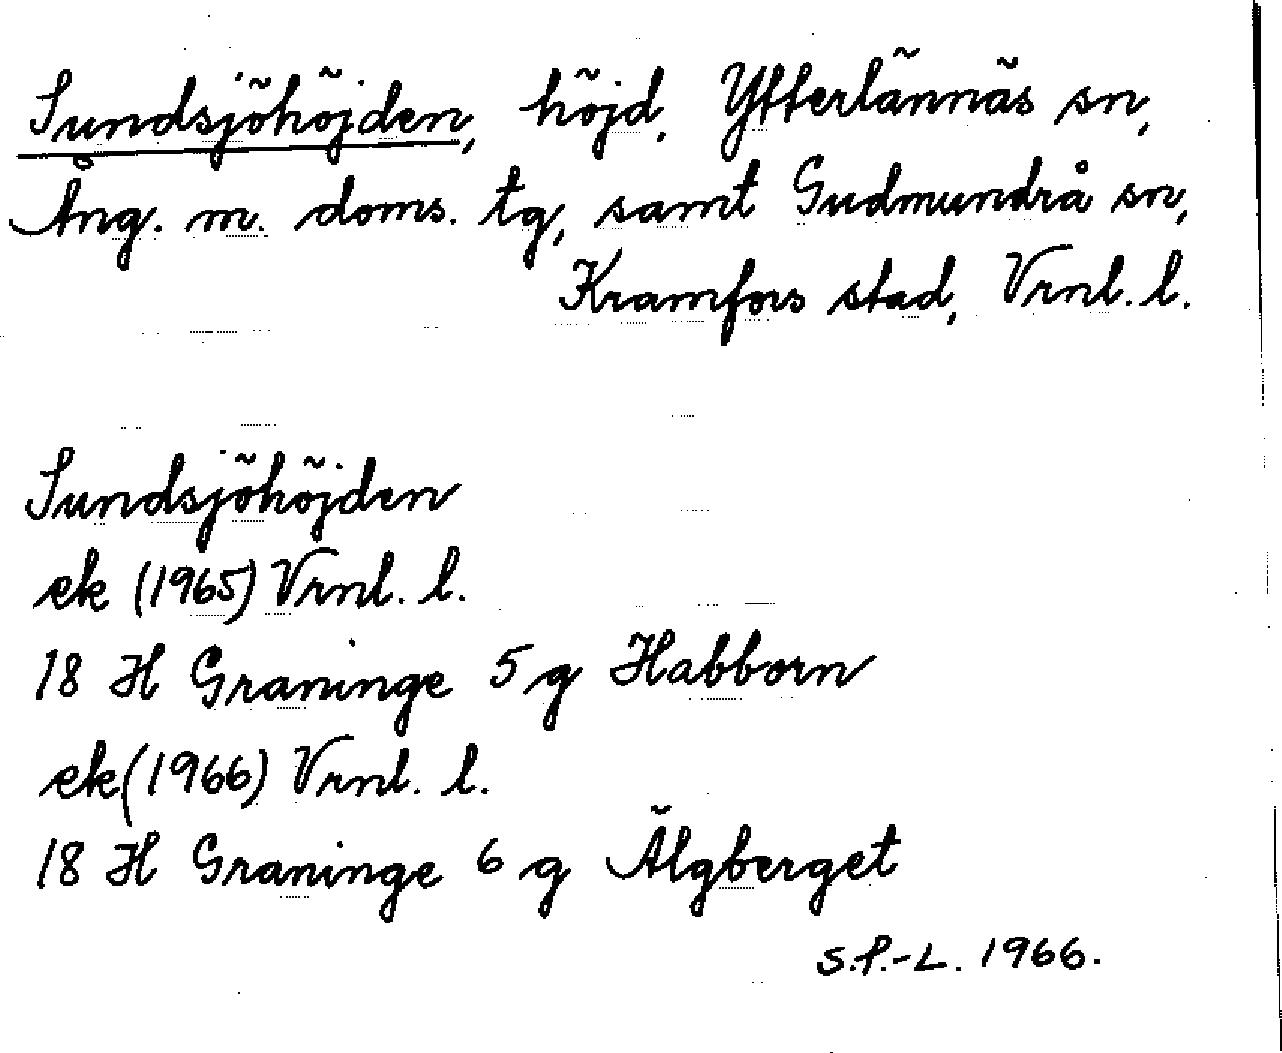 Sundsjöhöjden, höjd, Ytterlännäs sn,
Ång. m. doms. tg, samt Gudmundrå sn,
Kramfors stad, Vrnl. l.
Sundsjöhöjden
ek (1965) Vrnl. l.
18 H Graninge 5 g Habborn
ek (1966) Vrnl. l.
18 H Graninge 6 g Älgberget
S.P.-L. 1966.